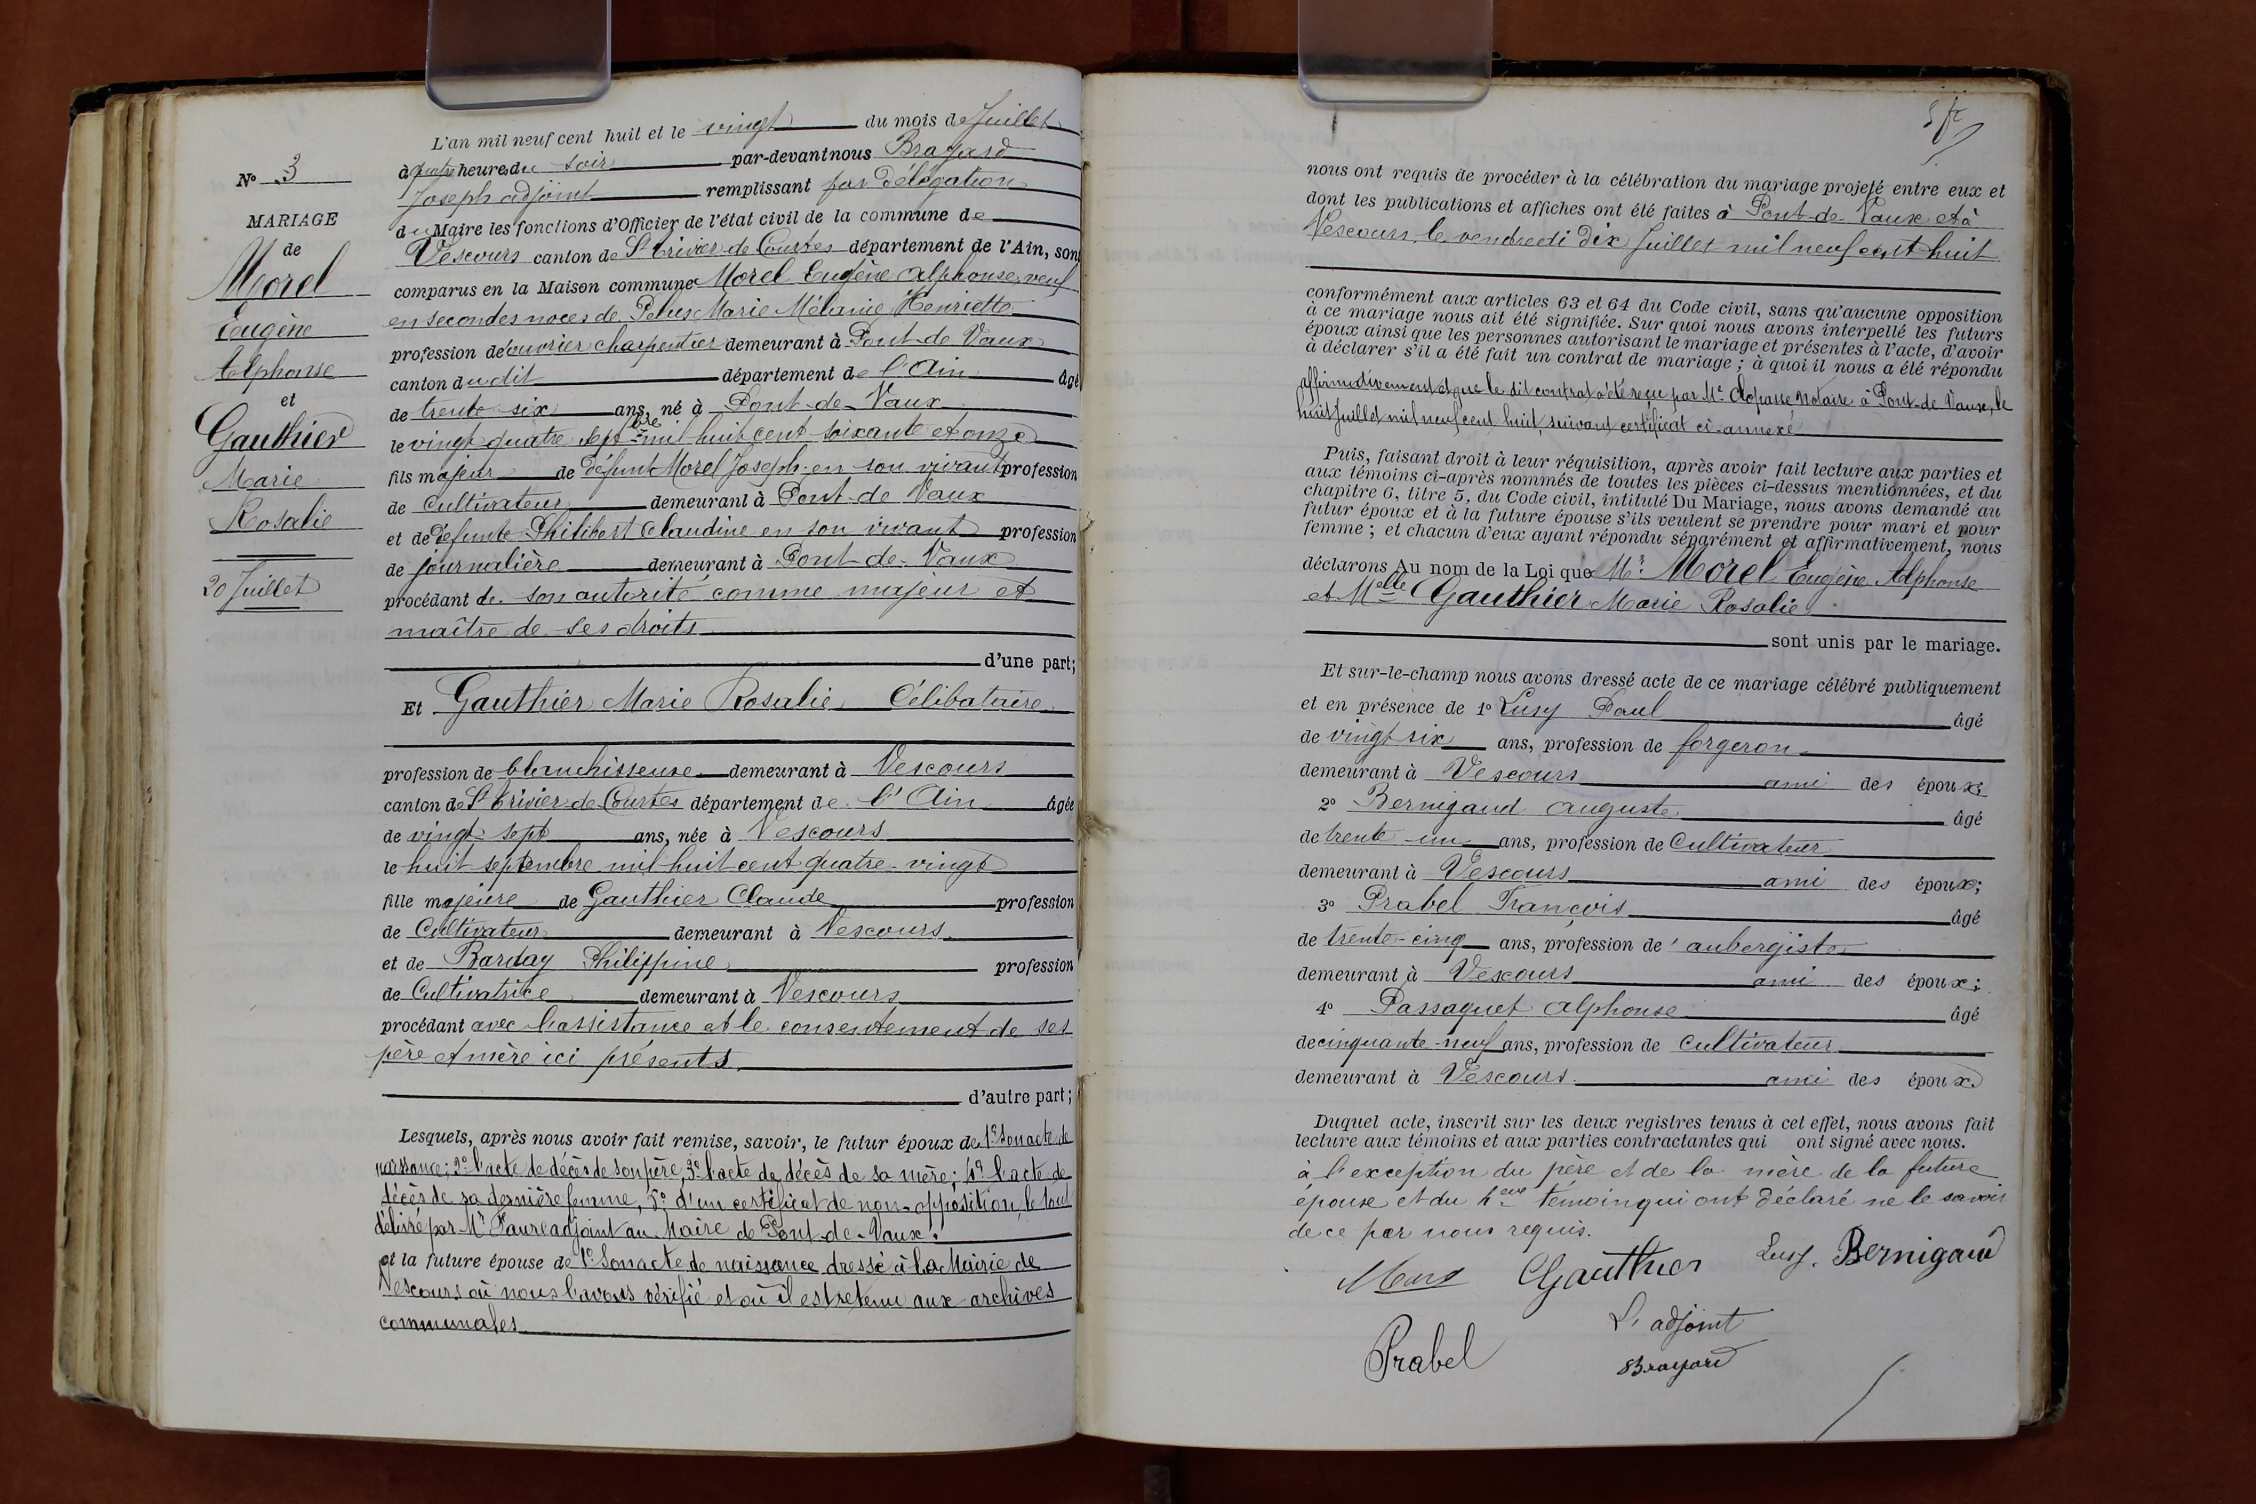 N° 3
MARIAGE
de
Morel
Eugène
Alphonse
et
Gauthier
Marie
Rosalie
20 Juillet
L'an mil neuf cent huit et le vingt du mois de Juillet
à quatre heures du soir par-devant nous Brayard
Joseph adjoint remplissant par délégation
du Maire les fonctions d'Officier de l'état civil de la commune de
Vescours canton de St Trivier de Courtes département de l'Ain, sont
comparus en la Maison commune Morel Eugène Alphonse, veuf
en secondes noces de Marie Mélanie Henriette
profession de ouvrier charpentier demeurant à Pont-de-Vaux
canton du dit département de l'Ain âgé
de trente six ans, né à Pont-de-Vaux
le vingt quatre septbre mil huit cent soixante et onze
fils majeur de défunt Morel Joseph en son vivant profession
de Cultivateur demeurant à Pont-de-Vaux
et de défunte Philibert Claudine en son vivant profession
de journalière demeurant à Pont-de-Vaux
procédant de son autorité comme majeur et
maître de ses droits
d'une part;
Et Gauthier Marie Rosalie Célibataire
profession de blanchisseuse demeurant à Vescours
canton de St Trivier de Courtes département de l'Ain âgée
de vingt-sept ans, née à Vescours
le huit septembre mil huit cent quatre-vingt
fille majeure de Gauthier Claude profession
de Cultivateur demeurant à Vescours
et de Barday Philippine profession
de Cultivatrice demeurant à Vescours
procédant avec l'assistance et le consentement de ses
père et mère ici présents
d'autre part;
Lesquels, après nous avoir fait remise, savoir, le futur époux de 1° son acte de
naissance; 2° l'acte de décès de son père, 3° l'acte de décès de sa mère; 4° l'acte de
décès de sa dernière femme, 5° d'un certificat de non-opposition, le tout
délivré par Mr Faure adjoint au Maire de Pont-de-Vaux.
et la future épouse de 1° Son acte de naissance dressé à la Mairie de
Vescours où nous l'avons vérifié et où il est retenu aux archives
communales
nous ont requis de procéder à la célébration du mariage projeté entre eux et
dont les publications et affiches ont été faites à Pont-de-Vaux et à
Vescours, le vendredi dix Juillet mil neuf cent huit
conformément aux articles 63 et 64 du Code civil, sans qu'aucune opposition
à ce mariage nous ait été signifiée. Sur quoi nous avons interpellé les futurs
époux ainsi que les personnes autorisant le mariage et présentes à l'acte, d'avoir
à déclarer s'il a été fait un contrat de mariage; à quoi il nous a été répondu
affirmativement et que le dit contrat a été reçu par Me Notaire à Pont-de-Vaux, le
huit Juillet mil neuf cent huit, suivant certificat ci-annexé
Puis, faisant droit à leur réquisition, après avoir fait lecture aux parties et
aux témoins ci-après nommés de toutes les pièces ci-dessus mentionnées, et du
chapitre 6, titre 5, du Code civil, intitulé Du Mariage, nous avons demandé au
futur époux et à la future épouse s'ils veulent se prendre pour mari et pour
femme; et chacun d'eux ayant répondu séparément et affirmativement, nous
déclarons Au nom de la Loi que Mr Morel Eugène Alphonse
et Melle Gauthier Marie Rosalie
sont unis par le mariage.
Et sur-le-champ nous avons dressé acte de ce mariage célébré publiquement
et en présence de 1° Lusy Paul âgé
de vingt six ans, profession de forgeron
demeurant à Vescours ami des époux;
2° Bernigaud Auguste âgé
de trente-un ans, profession de Cultivateur
demeurant à Vescours ami des époux;
3° Prabel François âgé
de trente-cinq ans, profession d'aubergiste
demeurant à Vescours ami des époux;
4° Passaquet Alphonse âgé
de cinquante-neuf ans, profession de cultivateur
demeurant à Vescours ami des époux
Duquel acte, inscrit sur les deux registres tenus à cet effet, nous avons fait
lecture aux témoins et aux parties contractantes qui ont signé avec nous.
à l'exception du père et de la mère de la future
épouse et du 4ème témoin qui ont déclaré ne le savoir
de ce par nous requis.
Gauthier Lusy. Bernigaud
L'adjoint
Prabel Brayard